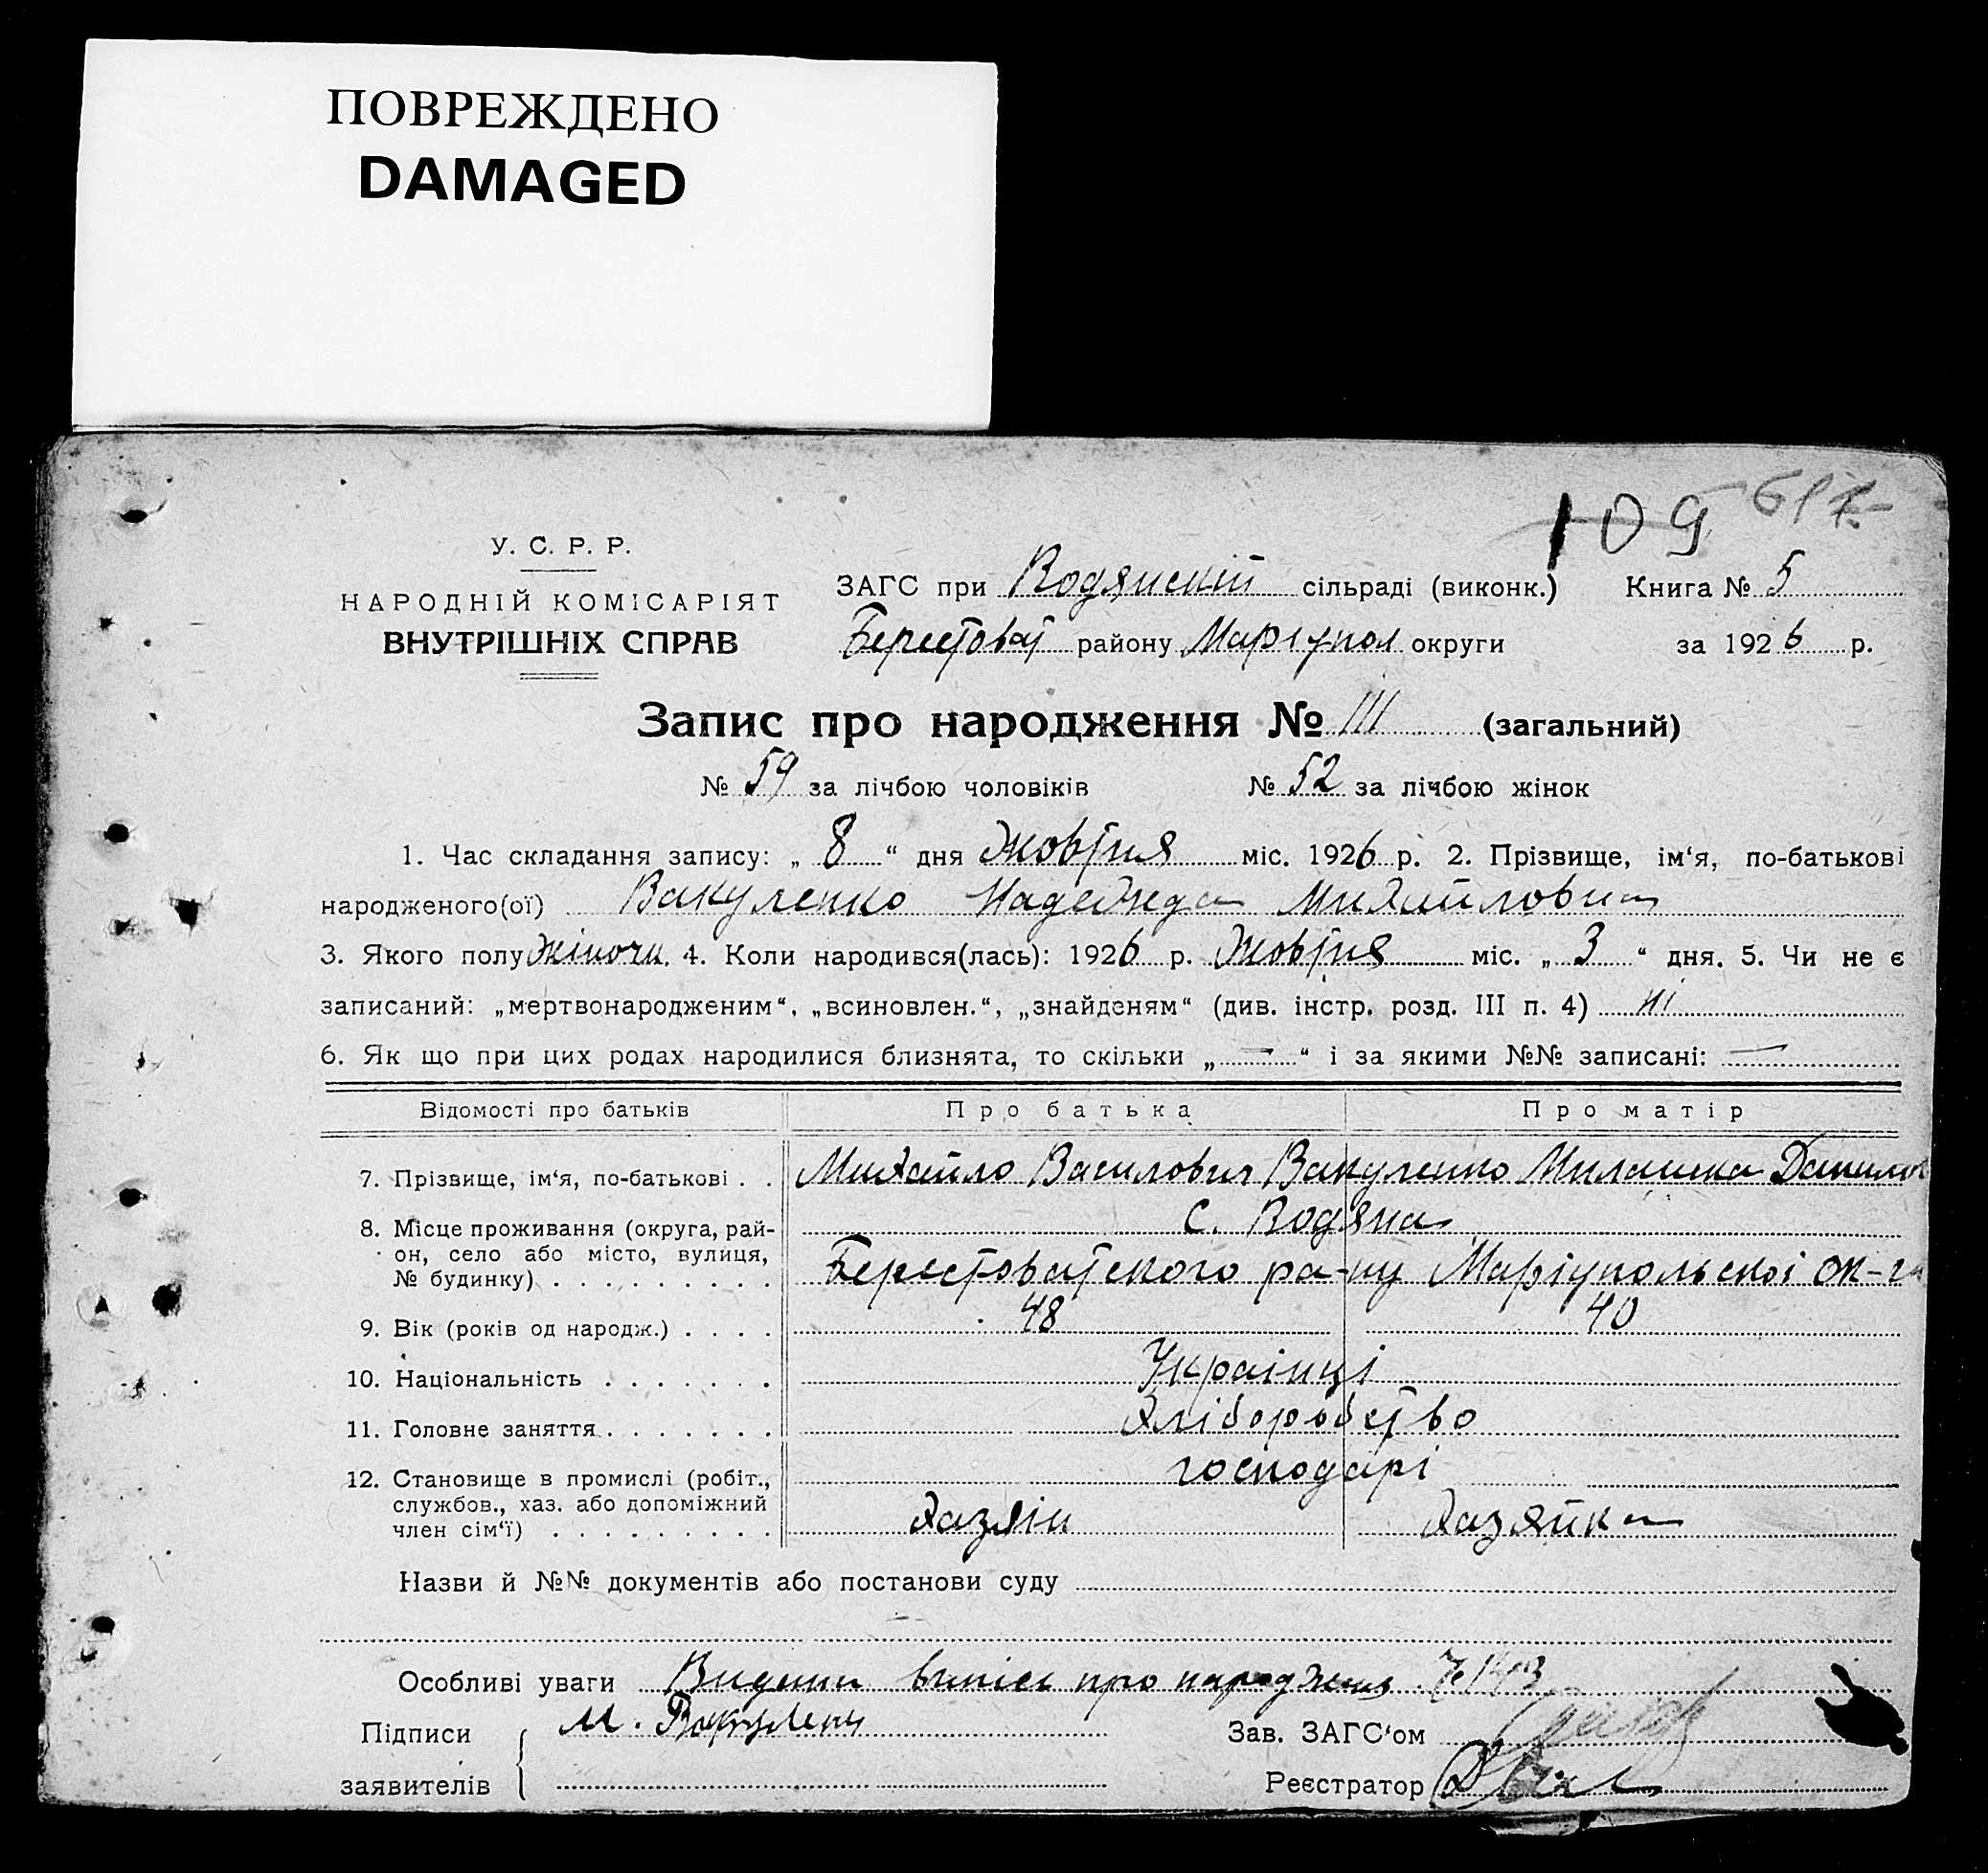 ПОВРЕЖДЕНО
DAMAGED
109 617
У. С. Р. Р.
НАРОДНІЙ КОМІСАРІЯТ
ВНУТРІШНІХ СПРАВ
ЗАГС при Водянский сільраді (виконк.) Книга № 5
Берестоват району Маріупол округи за 1926 р.
Запис про народження № 111 (загальний)
№ 59 за лічбою чоловіків № 52 за лічбою жінок
1. Час складання запису: „ 8 “ дня Жовтня міс. 1926 р. 2. Прізвище, ім‘я, по-батькові
народженого(ої) Вакуленко Надежда Михайловна
3. Якого полу жіночи. 4. Коли народився(лась): 1926 р. Жовтня міс. „ 3 “ дня. 5. Чи не є
записаний: „мертвонародженим“, „всиновлен.“, „знайденям“ (див. інстр. розд. III п. 4) ні
6. Як що при цих родах народилися близнята, то скільки „ — “ і за якими №№ записані: —
Відомості про батьків Про батька Про матір
7. Прізвище, ім‘я, по-батькові . . Михайло Василович Вакуленко Милашка Данилов
8. Місце проживання (округа, рай- с. Водяна
он, село або місто, вулиця,
№ будинку) . . . . . . . . . Берестоватского ра-ну Маріупольскоі ок-ги
9. Вік (років од народж.) . . . . 48 40
10. Національність . . . . . . . Українці
11. Головне заняття . . . . . . . Хліборобство
12. Становище в промислі (робіт., господарі
службов., хаз. або допоміжний
член сім‘ї) . . . . . . . . . Хазяін Хазяйка
Назви й №№ документів або постанови суду
Особливі уваги Видати випіс про народженя № 1403
Підписи М. Вакулен
заявителів
Зав. ЗАГС‘ом
Реєстратор